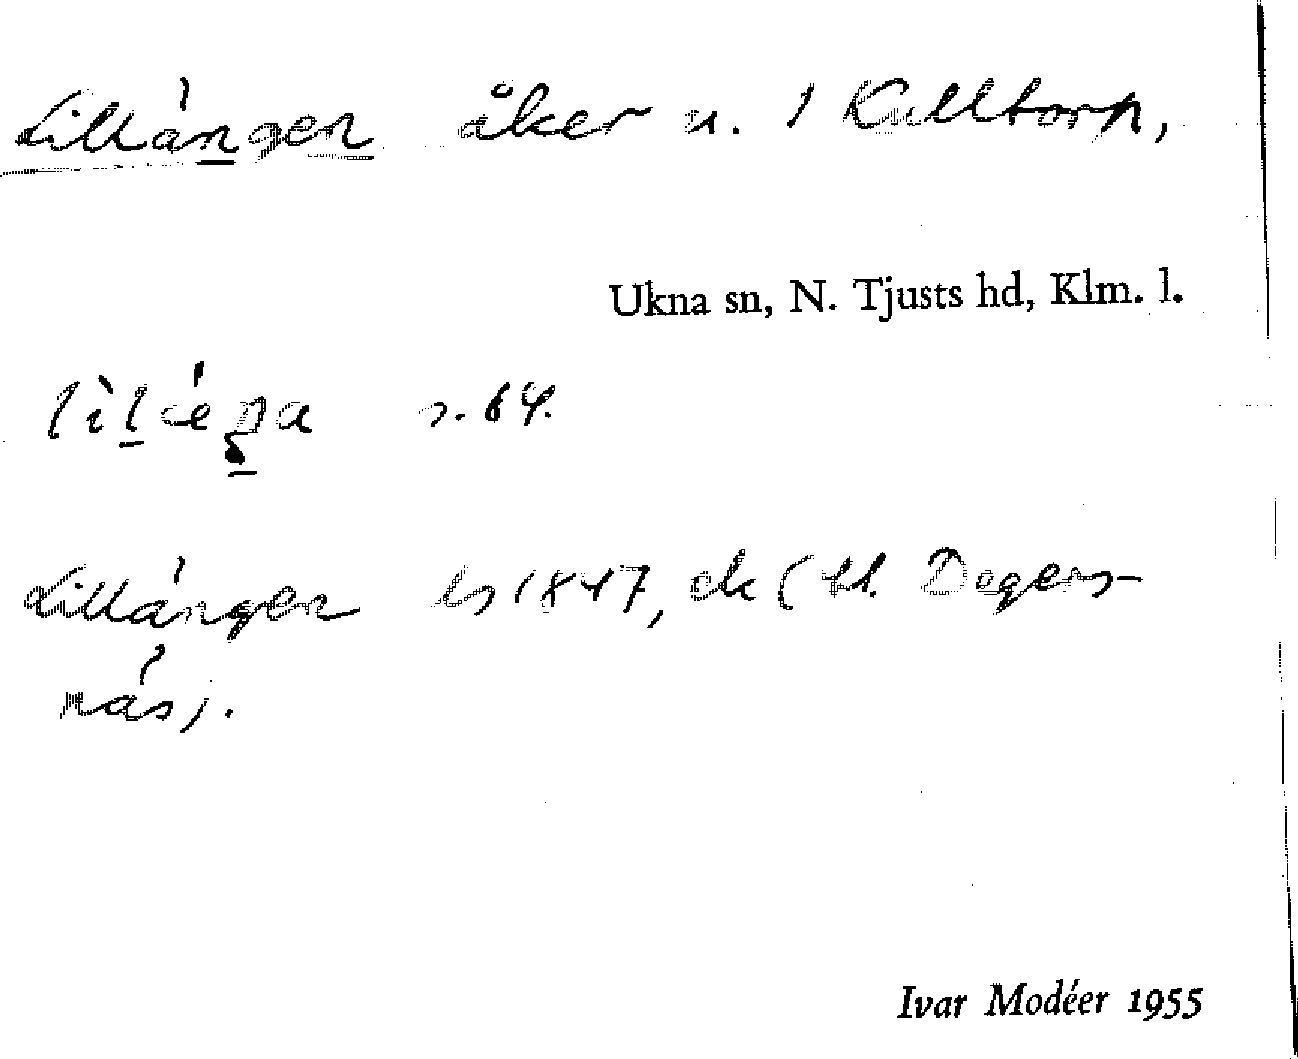 Lillängen åker u. 1 Kulltorp,
Ukna sn, N. Tjusts hd, Klm. l.
lìlæŋa s. 64.
Lillängen ls 1847, ck (tl. Dagers-
näs).
Ivar Modéer 1955